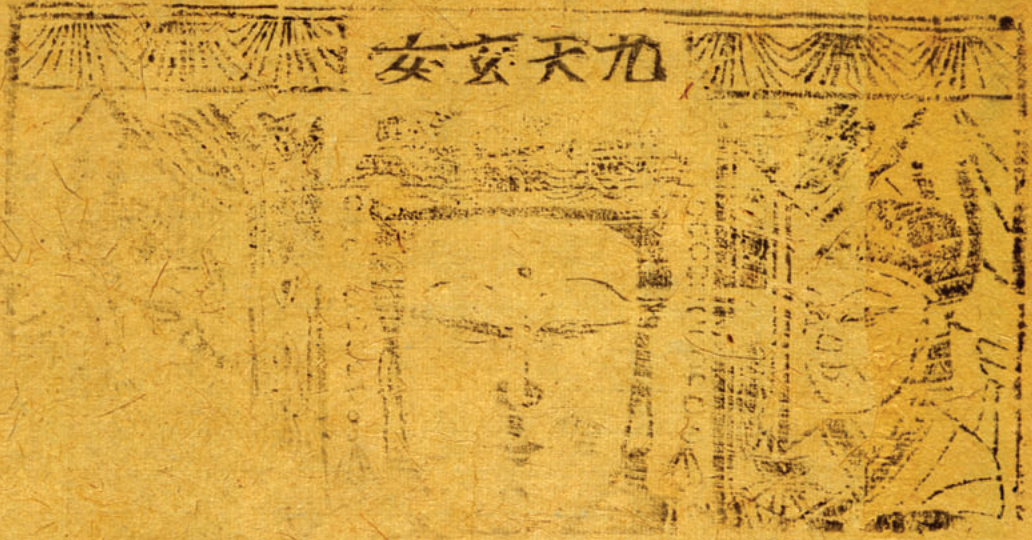 九天玄女